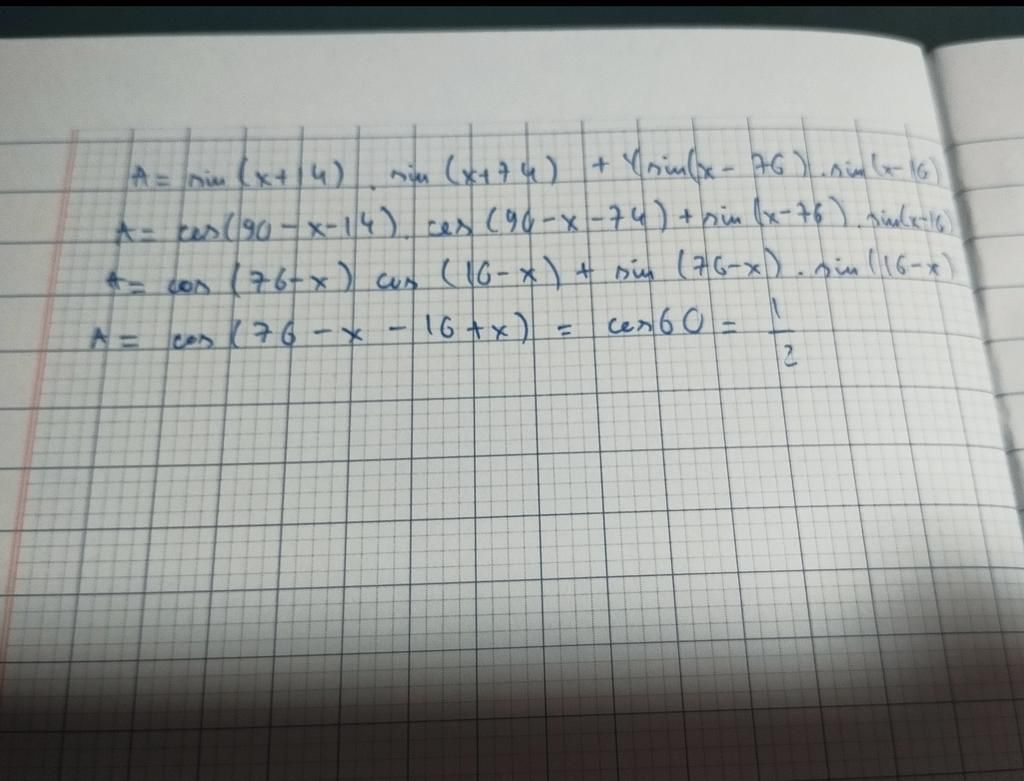 A = sin (x+14) . sin (x+74) + sin(x - 76) . sin(x-16)
A = cos(90-x-14). cos (90-x-74) + sin (x-76) . sin(x-16)
A = cos (76-x) cos (16-x) + sin (76-x) . sin (16-x)
A = cos (76 - x - 16 + x) = cos 60 = 1/2